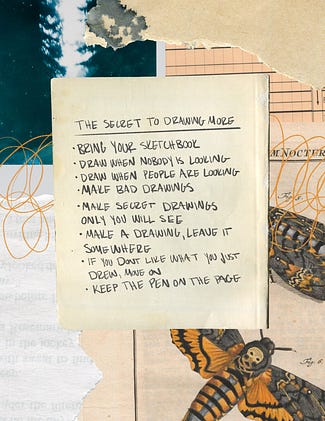 THE SECRET TO DRAWING MORE
• BRING YOUR SKETCHBOOK
• DRAW WHEN NOBODY IS LOOKING
• DRAW WHEN PEOPLE ARE LOOKING
• MAKE BAD DRAWINGS
• MAKE SECRET DRAWINGS
ONLY YOU WILL SEE
• MAKE A DRAWING, LEAVE IT
SOMEWHERE
• IF YOU DONT LIKE WHAT YOU JUST
DREW, MOVE ON
• KEEP THE PEN ON THE PAGE
M.NOCTER
Fig. 5.
Fig. 6.